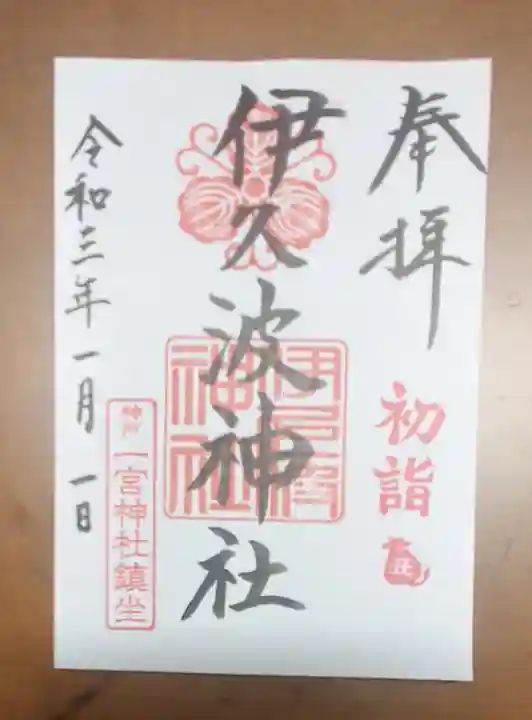 奉拝
初詣
丑
伊久波神社
伊戸
神社
令和三年一月一日
神戸
一宮神社鎮坐